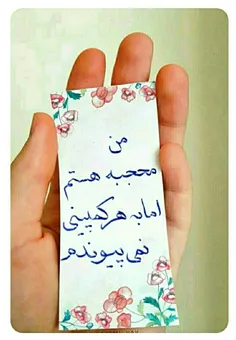 من
محجبه هستم
اما به هر کمپینی
نمی پیوندم